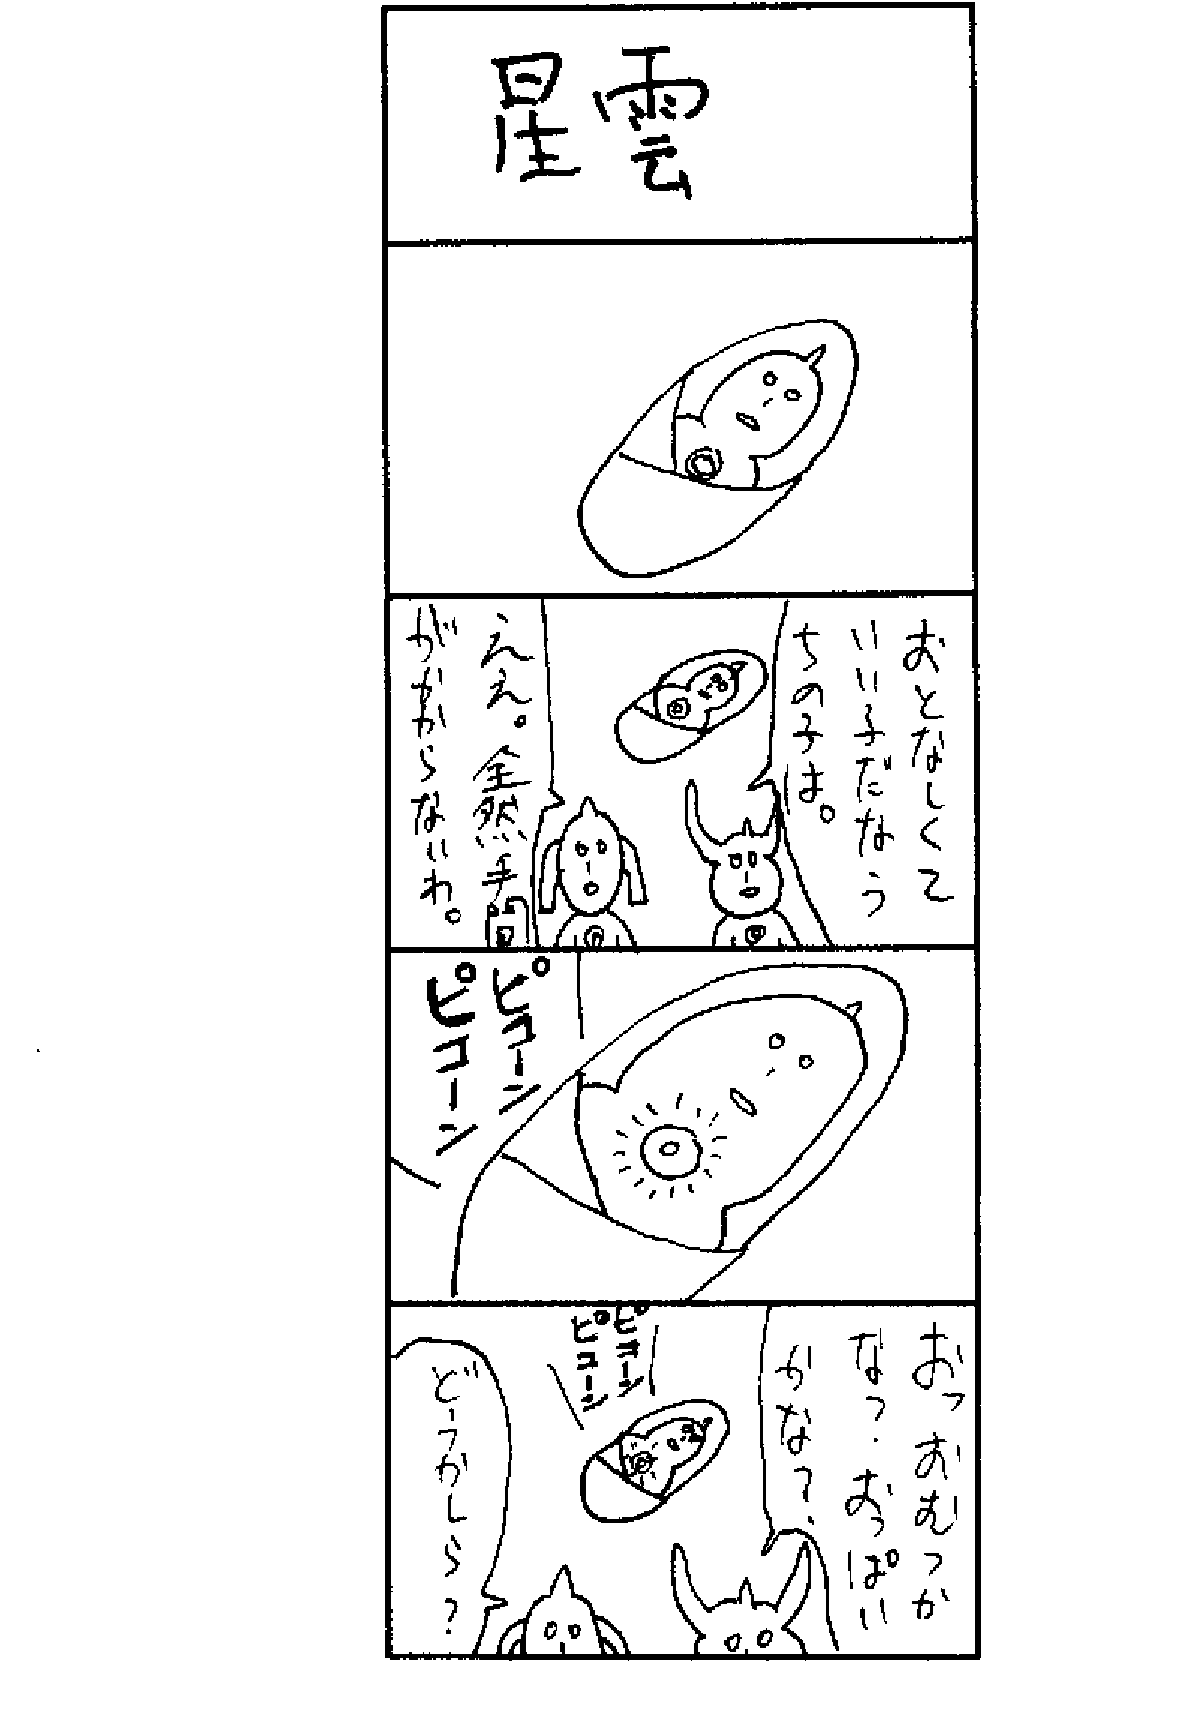 星雲
おとなしくて
いい子だなう
ちの子は。
ええ。全然手
がかからないわ。
ピコーン
ピコーン
おっおむつか
な?おっぱい
かな?
ピコーン
ピコーン
どーかしら?